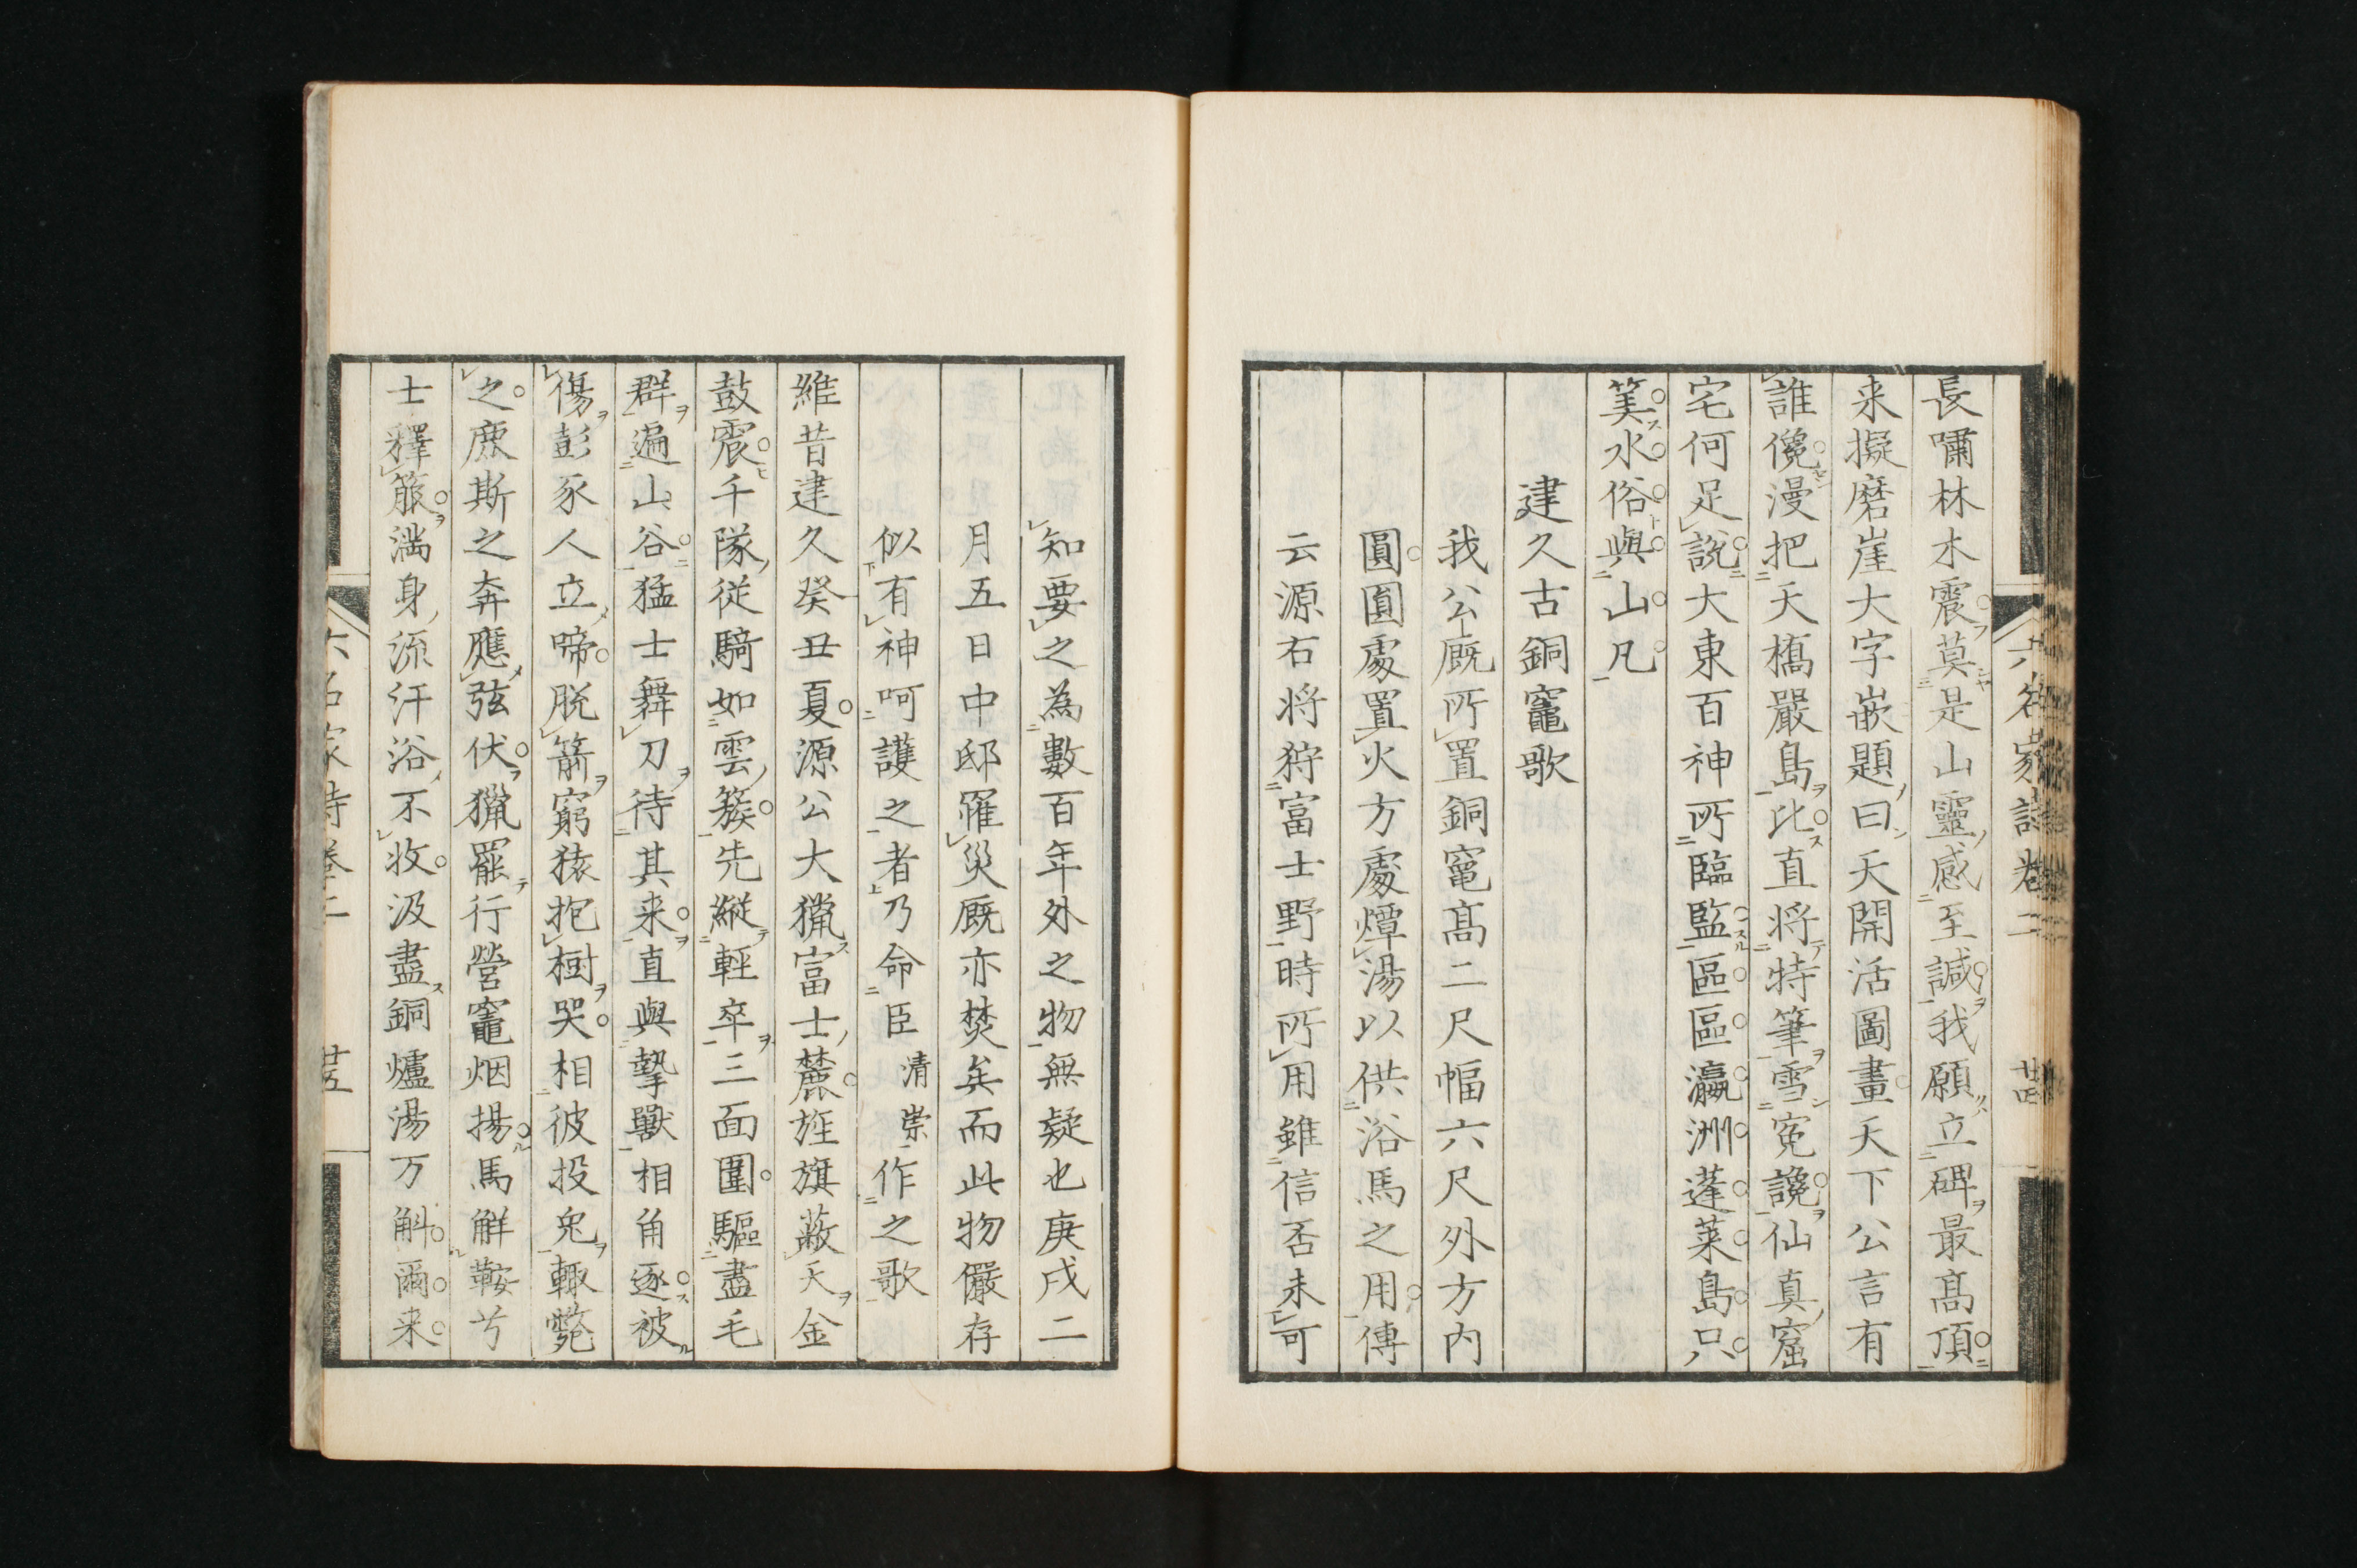 六名家詩卷二 廿四
長嘯林木震莫是山靈感至誠我願立碑最高頂
来擬磨崖大字嵌題曰天開活圖畫天下公言有
誰儳漫把天橋嚴島比直将特筆雪寃讒仙真窟
宅何足說大東百神所臨監區區瀛洲蓬莱島只
筭水俗與山凡
建久古銅竈歌
我公厩所置銅竃髙二尺幅六尺外方内
圓圓處置火方處燂湯以供浴馬之用傳
云源右将狩富士野時所用雖信否未可
知要之為數百年外之物無疑也庚戌二
月五日中邸罹災厩亦焚矣而此物儼存
似有神呵護之者乃命臣清崇作之歌
維昔建久癸丑夏源公大獵富士麓旌旗蔽天金
鼓震千隊從騎如雲簇先縱輕卒三面圍驅盡毛
群遍山谷猛士舞刀待其来直與摯獸相角逐被
傷彭豕人立啼脱箭窮猿抱樹哭相彼投兔輙斃
之鹿斯之奔應弦伏獵罷行營竈烟揚馬解鞍兮
士釋箙満身流汗浴不收汲盡銅爐湯万斛爾来
六名家詩卷二 廿五